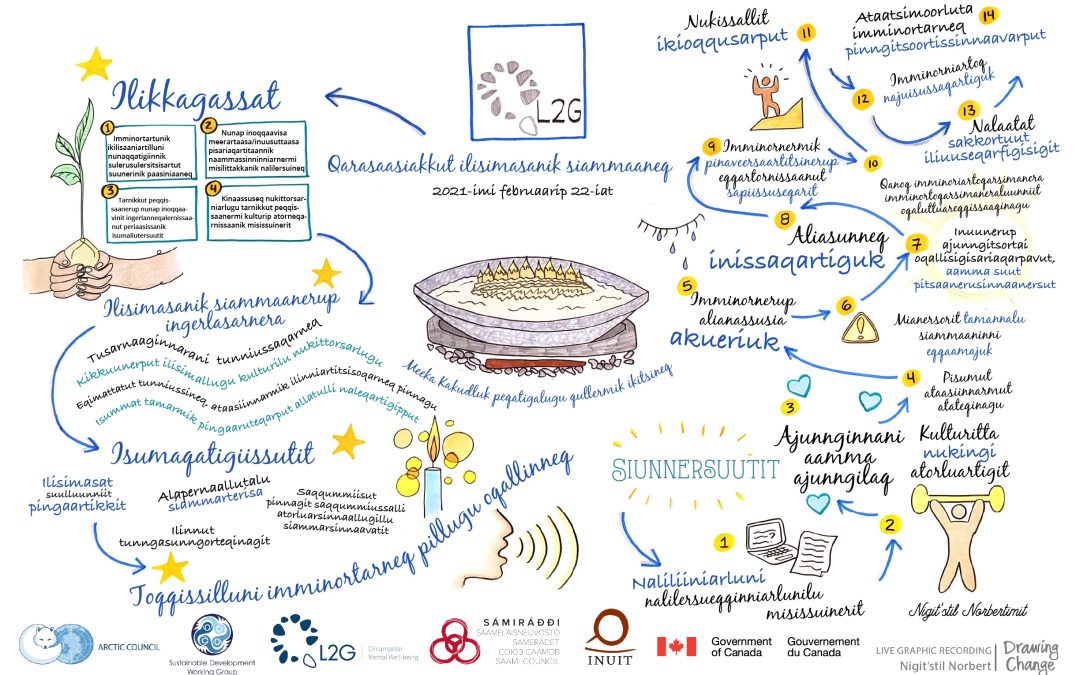 Ilikkagassat
1
Imminortartunik
ikilisaaniartilluni
nunaqqatigiinnik
sulerusulersitsisartut
suunerinik paasiniaaneq
2
Nunap inoqqaavisa
meerartaasa/inuusuttaasa
pisariaqartitaannik
naammassinninniarnermi
misilittakkanik nalilersuineq
3
Tarnikkut peqqis-
saanerup nunap inoqqaa-
vinit ingerlanneqalernissaa-
nut periaasissanik
isumaliutersuutit
4
Kinaassuseq nukittorsar-
niarlugu tarnikkut peqqis-
saanermi kulturip atorneqa-
rnissaanik misissuinerit
L2G
Qarasaasiakkut ilisimasanik siammaaneq
2021-imi februaarip 22-iat
Ilisimasanik siammaanerup
ingerlasarnera
Tusarnaaginnarani tunniussaqarneq
Kikkuunerput ilisimallugu kulturilu nukittorsarlugu
Eqimattatut tunniussineq, ataasiinnarmik ilinniartitsisoqarneq pinnagu
Isummat tamarmik pingaaruteqarput allatulli naleqartigipput
Isumaqatigiissutit
Ilisimasat
suulluunniit
pingaartikkit
Alapernaallutalu
siammarterisa
Ilinnut
tunngasunngorteqinagit
Saqqummiisut
pinnagit saqqummiussalli
atorluarsinnaallugillu
siammarsinnaavatit
Toqqissilluni imminortarneq pillugu oqallinneq
Meeka Kakudluk peqatigalugu qullermik ikitsineq
SIUNNERSUUTIT
1
Naliliiniarluni
nalilersueqqinniarlunilu
misissuinerit
2
Kulturitta
nukingi
atorluartigit
3
Ajunnginnani
aamma
ajunngilaq
4
Pisumut
ataasiinnarmut
atateqinagu
5
Imminornerup
alianassusia
akueriuk
6
Mianersorit tamannalu
siammaaninni
eqqaamajuk
7
Inuunerup
ajunngitsortai
oqallisigisariaqarpavut,
aamma suut
pitsaanerusinnaanersut
8
Aliasunneq
inissaqartiguk
9
Imminornermik
pinaveersaartitsinerup
eqqartornissaanut
sapiissuseqarit
10
Qanoq imminoriartoqarsimanera
imminortoqarsimaneraluunniit
oqaluttuareqqissaaqinagu
11
Nukissallit
ikioqqusarput
12
Imminorniartoq
najuisussaqartiguk
13
Nalaatat
sakkortuut
iliuuseqarfigisigit
14
Ataatsimoorluta
imminortarneq
pinngitsoortissinnaavarput
Nigit'stil Norbertimit
ARCTIC COUNCIL
Sustainable Development
Working Group
L2G
Circumpolar
Mental Well-being
SÁMIRÁĐĐI
SAAMELAISNEUVOSTO
SAMERÅDET
СОЮЗ СААМОВ
SAAMI COUNCIL
INUIT
Government
of Canada
Gouvernement
du Canada
LIVE GRAPHIC RECORDING
Nigit'stil Norbert
Drawing
Change